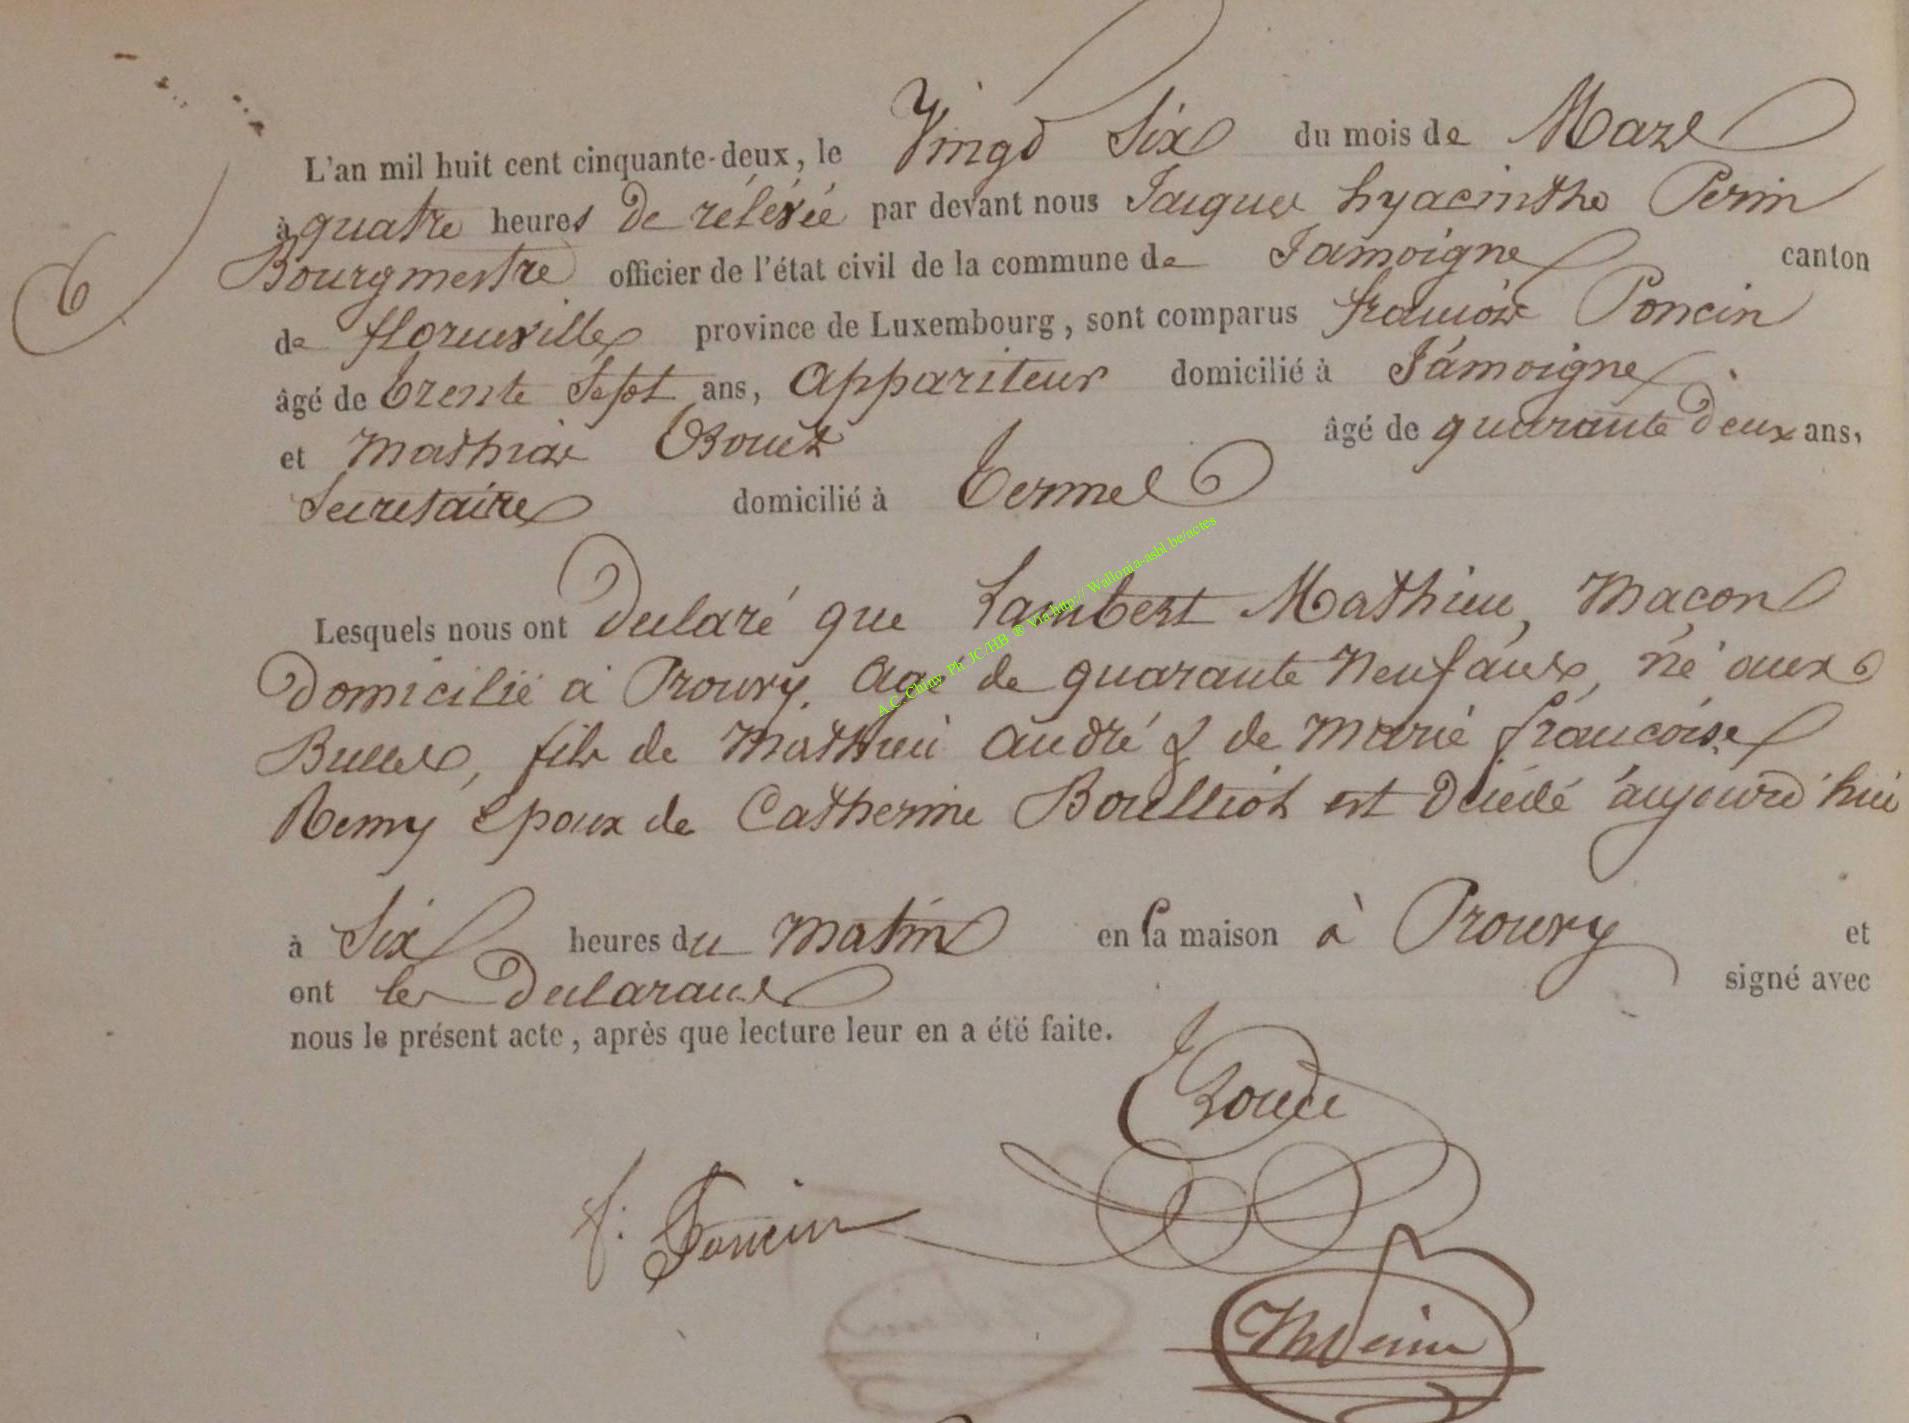 L'an mil huit cent cinquante-deux, le Vingt Six du mois de Mars
à quatre heures de rélévée par devant nous Jacques hyacinthe Perin
Bourgmestre officier de l'état civil de la commune de Jamoigne canton
6
de florenville province de Luxembourg, sont comparus françois Poncin
âgé de trente Sept ans, appariteur domicilié à Jamoigne
et Mathias âgé de quarante deux ans,
Secretaire domicilié à Termes
Lesquels nous ont declaré que Lambert Mathieu, Maçon
Domicilié à Prouvy. agé de quarante Neuf ans, né aux
Bulles, fils de Mathieu andré & de Marie françoise
Remy époux de Catherine est décédé aujourd'hui
à Six heures du Matin en sa maison à Prouvy et
ont les Declarans signé avec
nous le présent acte, après que lecture leur en a été faite.
f: Poncin
A.C. Chiny Ph JC/HB ® Via http://Wallonia-asbl.be/actes